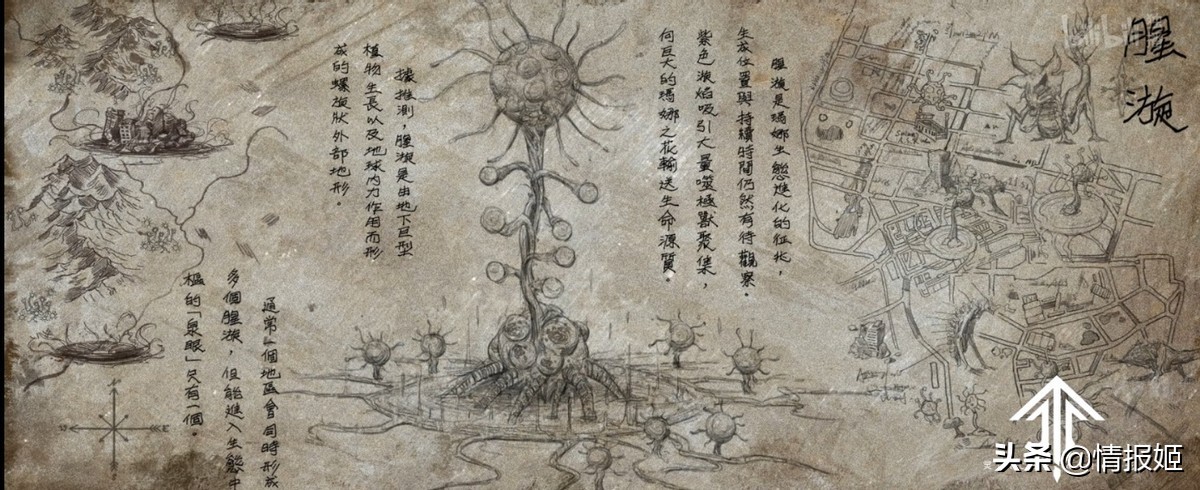 腥漩
腥漩是瑪娜生態進化的征兆，
生成位置與持續時間仍然有待觀察。
紫色漩焰吸引大量噬極獸聚集，
向巨大的瑪娜之花輸送生命源質。
據推測，腥漩是由地下巨型
植物生長以及地球內力作用而形
成的螺旋狀外部地形。
通常一個地區會同時形成
多個腥漩，但能進入生態中
樞的「泉眼」只有一個。
头条 @情报姬